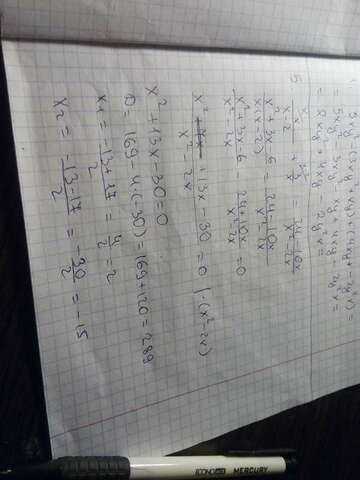 = 5xy² - 3y²
= 2xy² - 4xy - 2y²v =
5
x/x-2 + 3/x = 24-10x/x²-2x
x²+3x-6/x(x-2) = 24-10x/x²-2x
x²+3x-6/x²-2x - 24+10x/x²-2x = 0
x² + 13x - 30/x²-2x = 0 | ·(x²-2x)
x² + 13x - 30 = 0
D = 169 - 4·(-30) = 169 + 120 = 289
x₁ = -13+17/2 = 4/2 = 2
x₂ = -13-17/2 = -30/2 = -15
ECONOMIX MERCURY